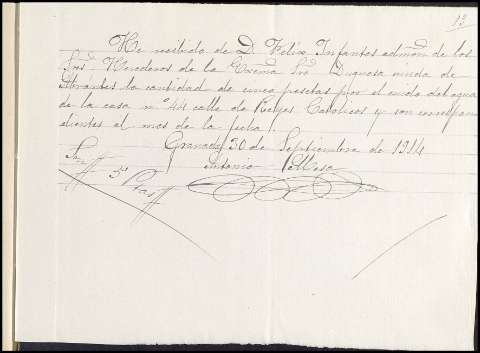 13
He recibido de D. Felix Infantes admon. de los
Srs. Herederos de la Excma. Sra. Duquesa viuda de
Abrantes la cantidad de cinco pesetas por el cuido del agua
de la casa nº 44 calle de Reyes Catolicos y son correspon
dientes al mes de la fecha.
Granada 30 de Septiembre de 1914
Antonio
Son 5 Ptas